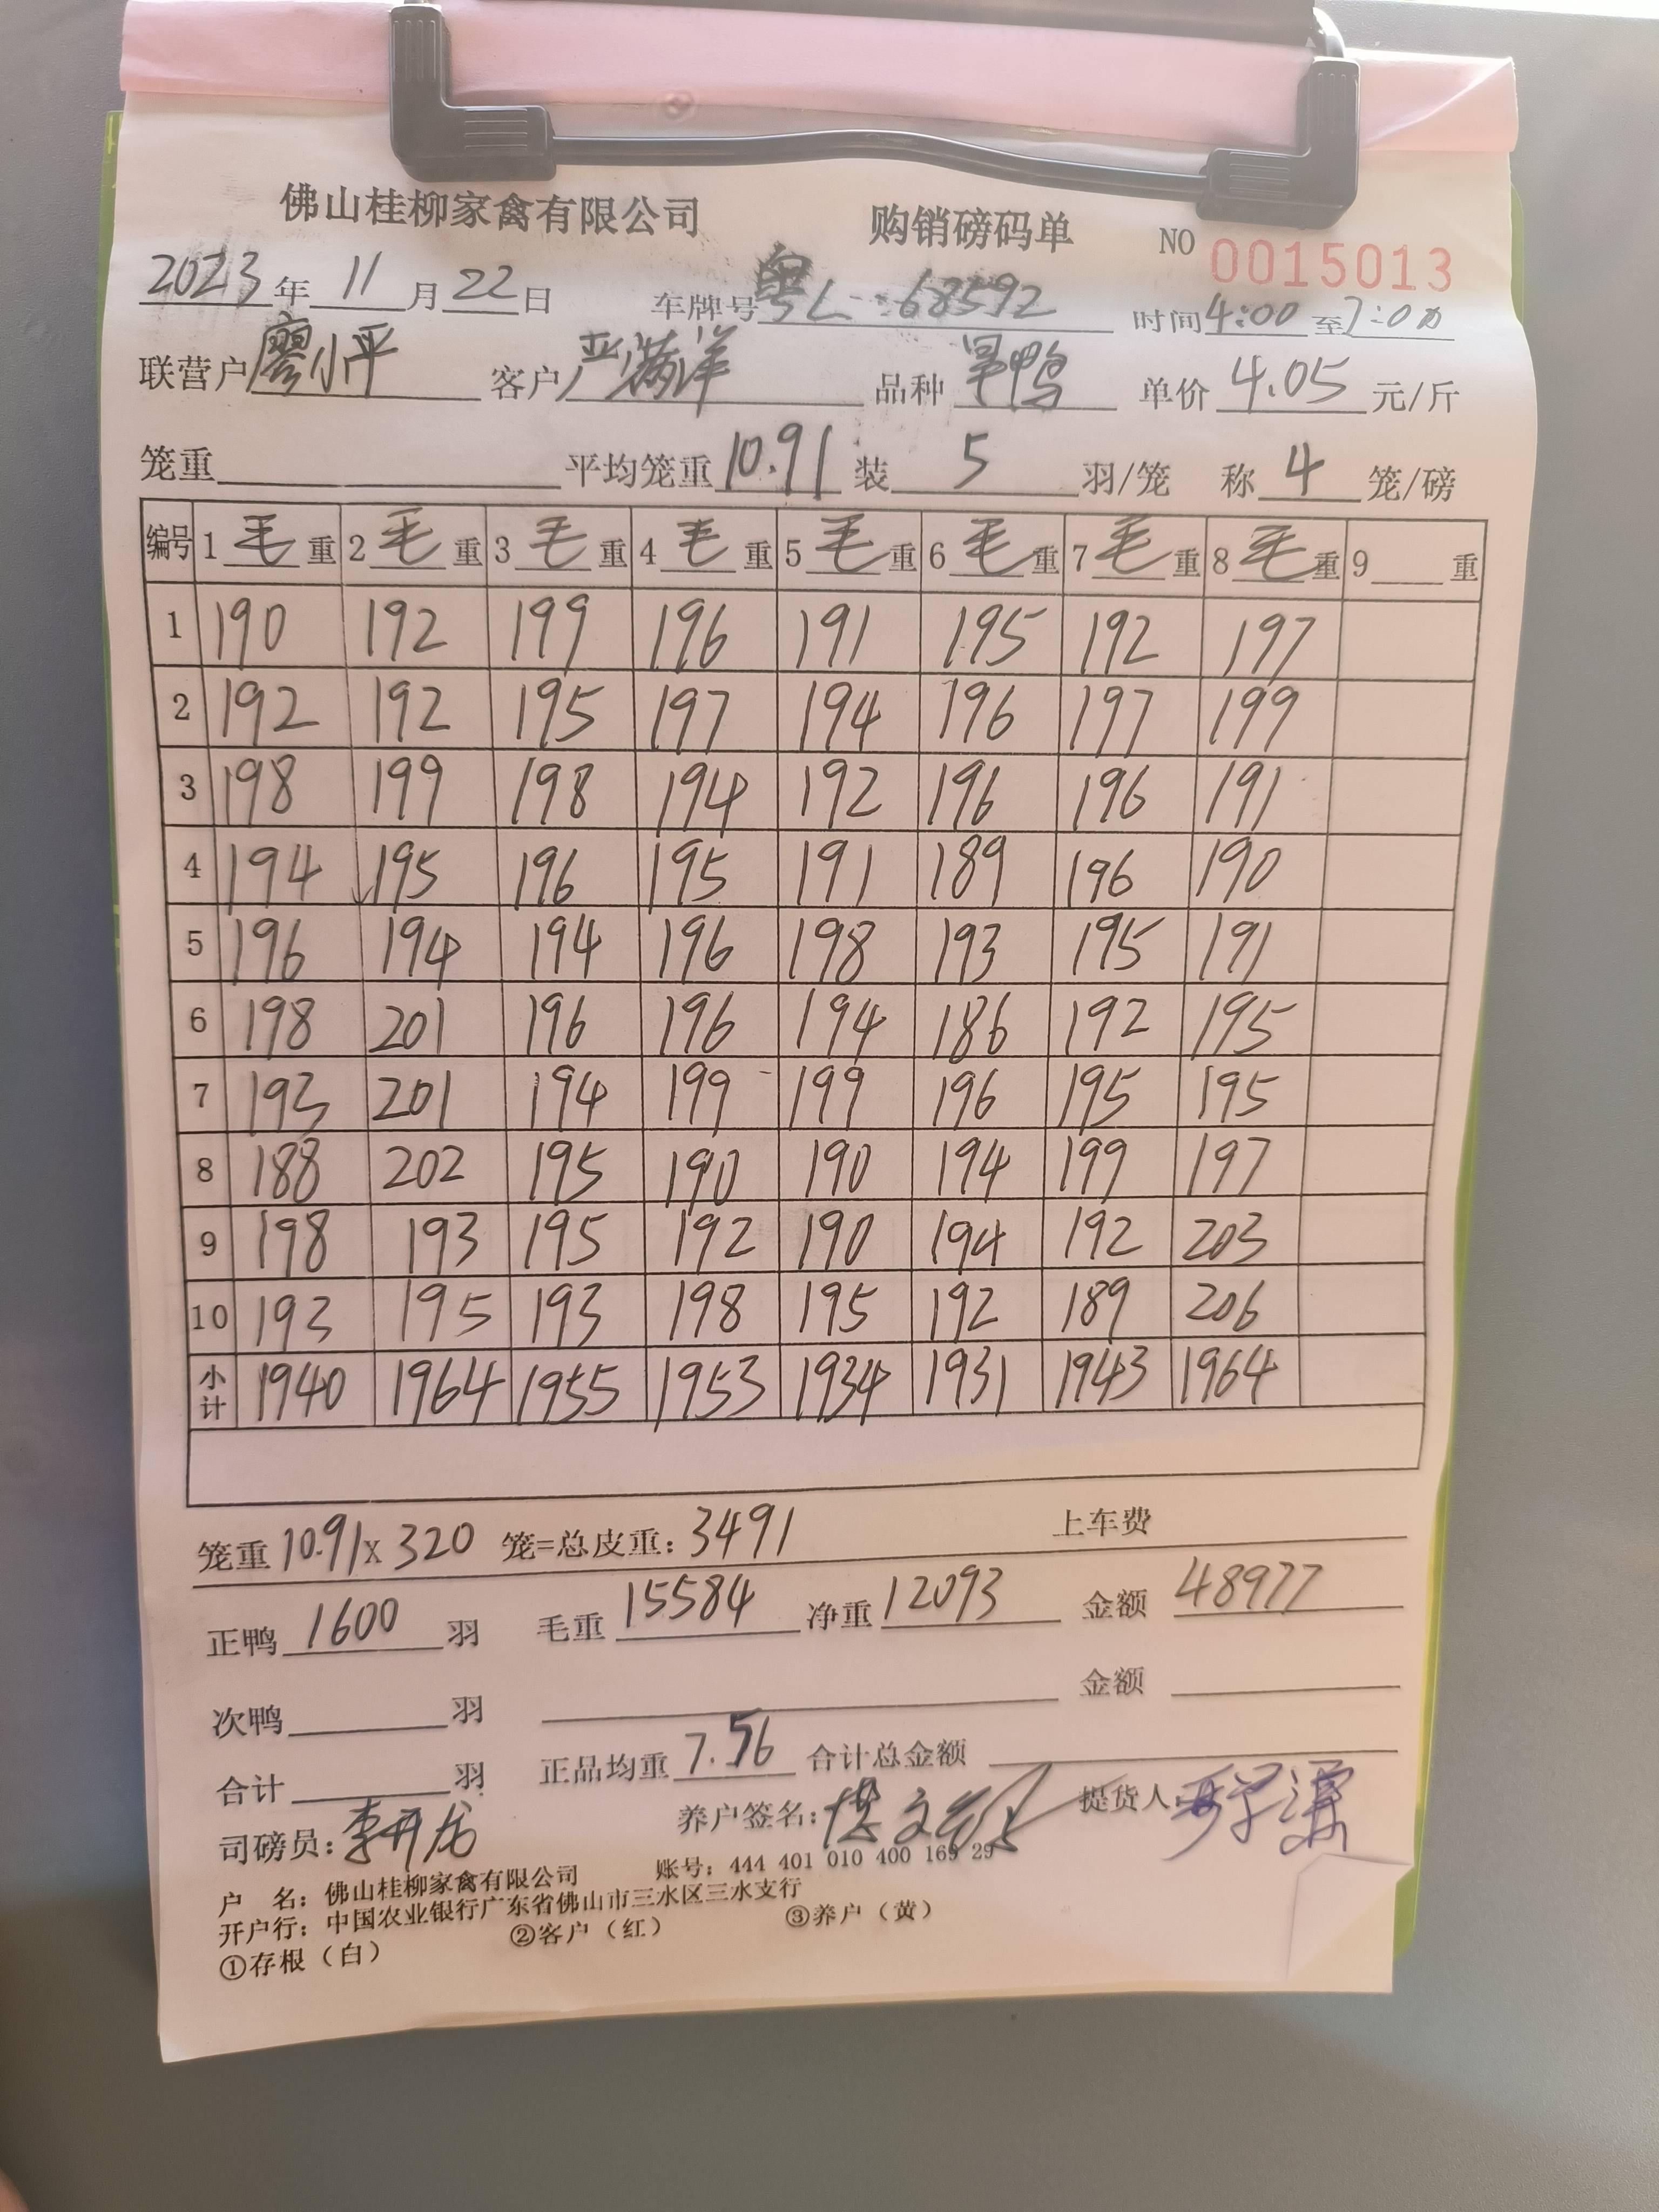 佛山桂柳家禽有限公司 购销磅码单 NO 0015013
2023年11月22日 车牌号粤L 68592 时间4:00至7:00
联营户廖小平 客户严满洋 品种旱鸭 单价4.05元/斤
笼重 平均笼重10.91装5羽/笼 称4笼/磅
编号 1毛重 2毛重 3毛重 4毛重 5毛重 6毛重 7毛重 8毛重 9 重
1 190 192 199 196 191 195 192 197
2 192 192 195 197 194 196 197 199
3 198 199 198 194 192 196 196 191
4 194 195 196 195 191 189 196 190
5 196 194 194 196 198 193 195 191
6 198 201 196 196 194 186 192 195
7 193 201 194 199 199 196 195 195
8 188 202 195 190 190 194 199 197
9 198 193 195 192 190 194 192 203
10 193 195 193 198 195 192 189 206
小计 1940 1964 1955 1953 1934 1931 1943 1964
笼重10.91X320 笼=总皮重:3491 上车费
正鸭1600羽 毛重15584 净重12093 金额48977
次鸭 羽 金额
合计 羽 正品均重7.56 合计总金额
司磅员:李开龙 养户签名: 提货人:
户 名:佛山桂柳家禽有限公司 账号:444 401 010 400 169 29
开户行:中国农业银行广东省佛山市三水区三水支行
①存根(白) ②客户(红) ③养户(黄)